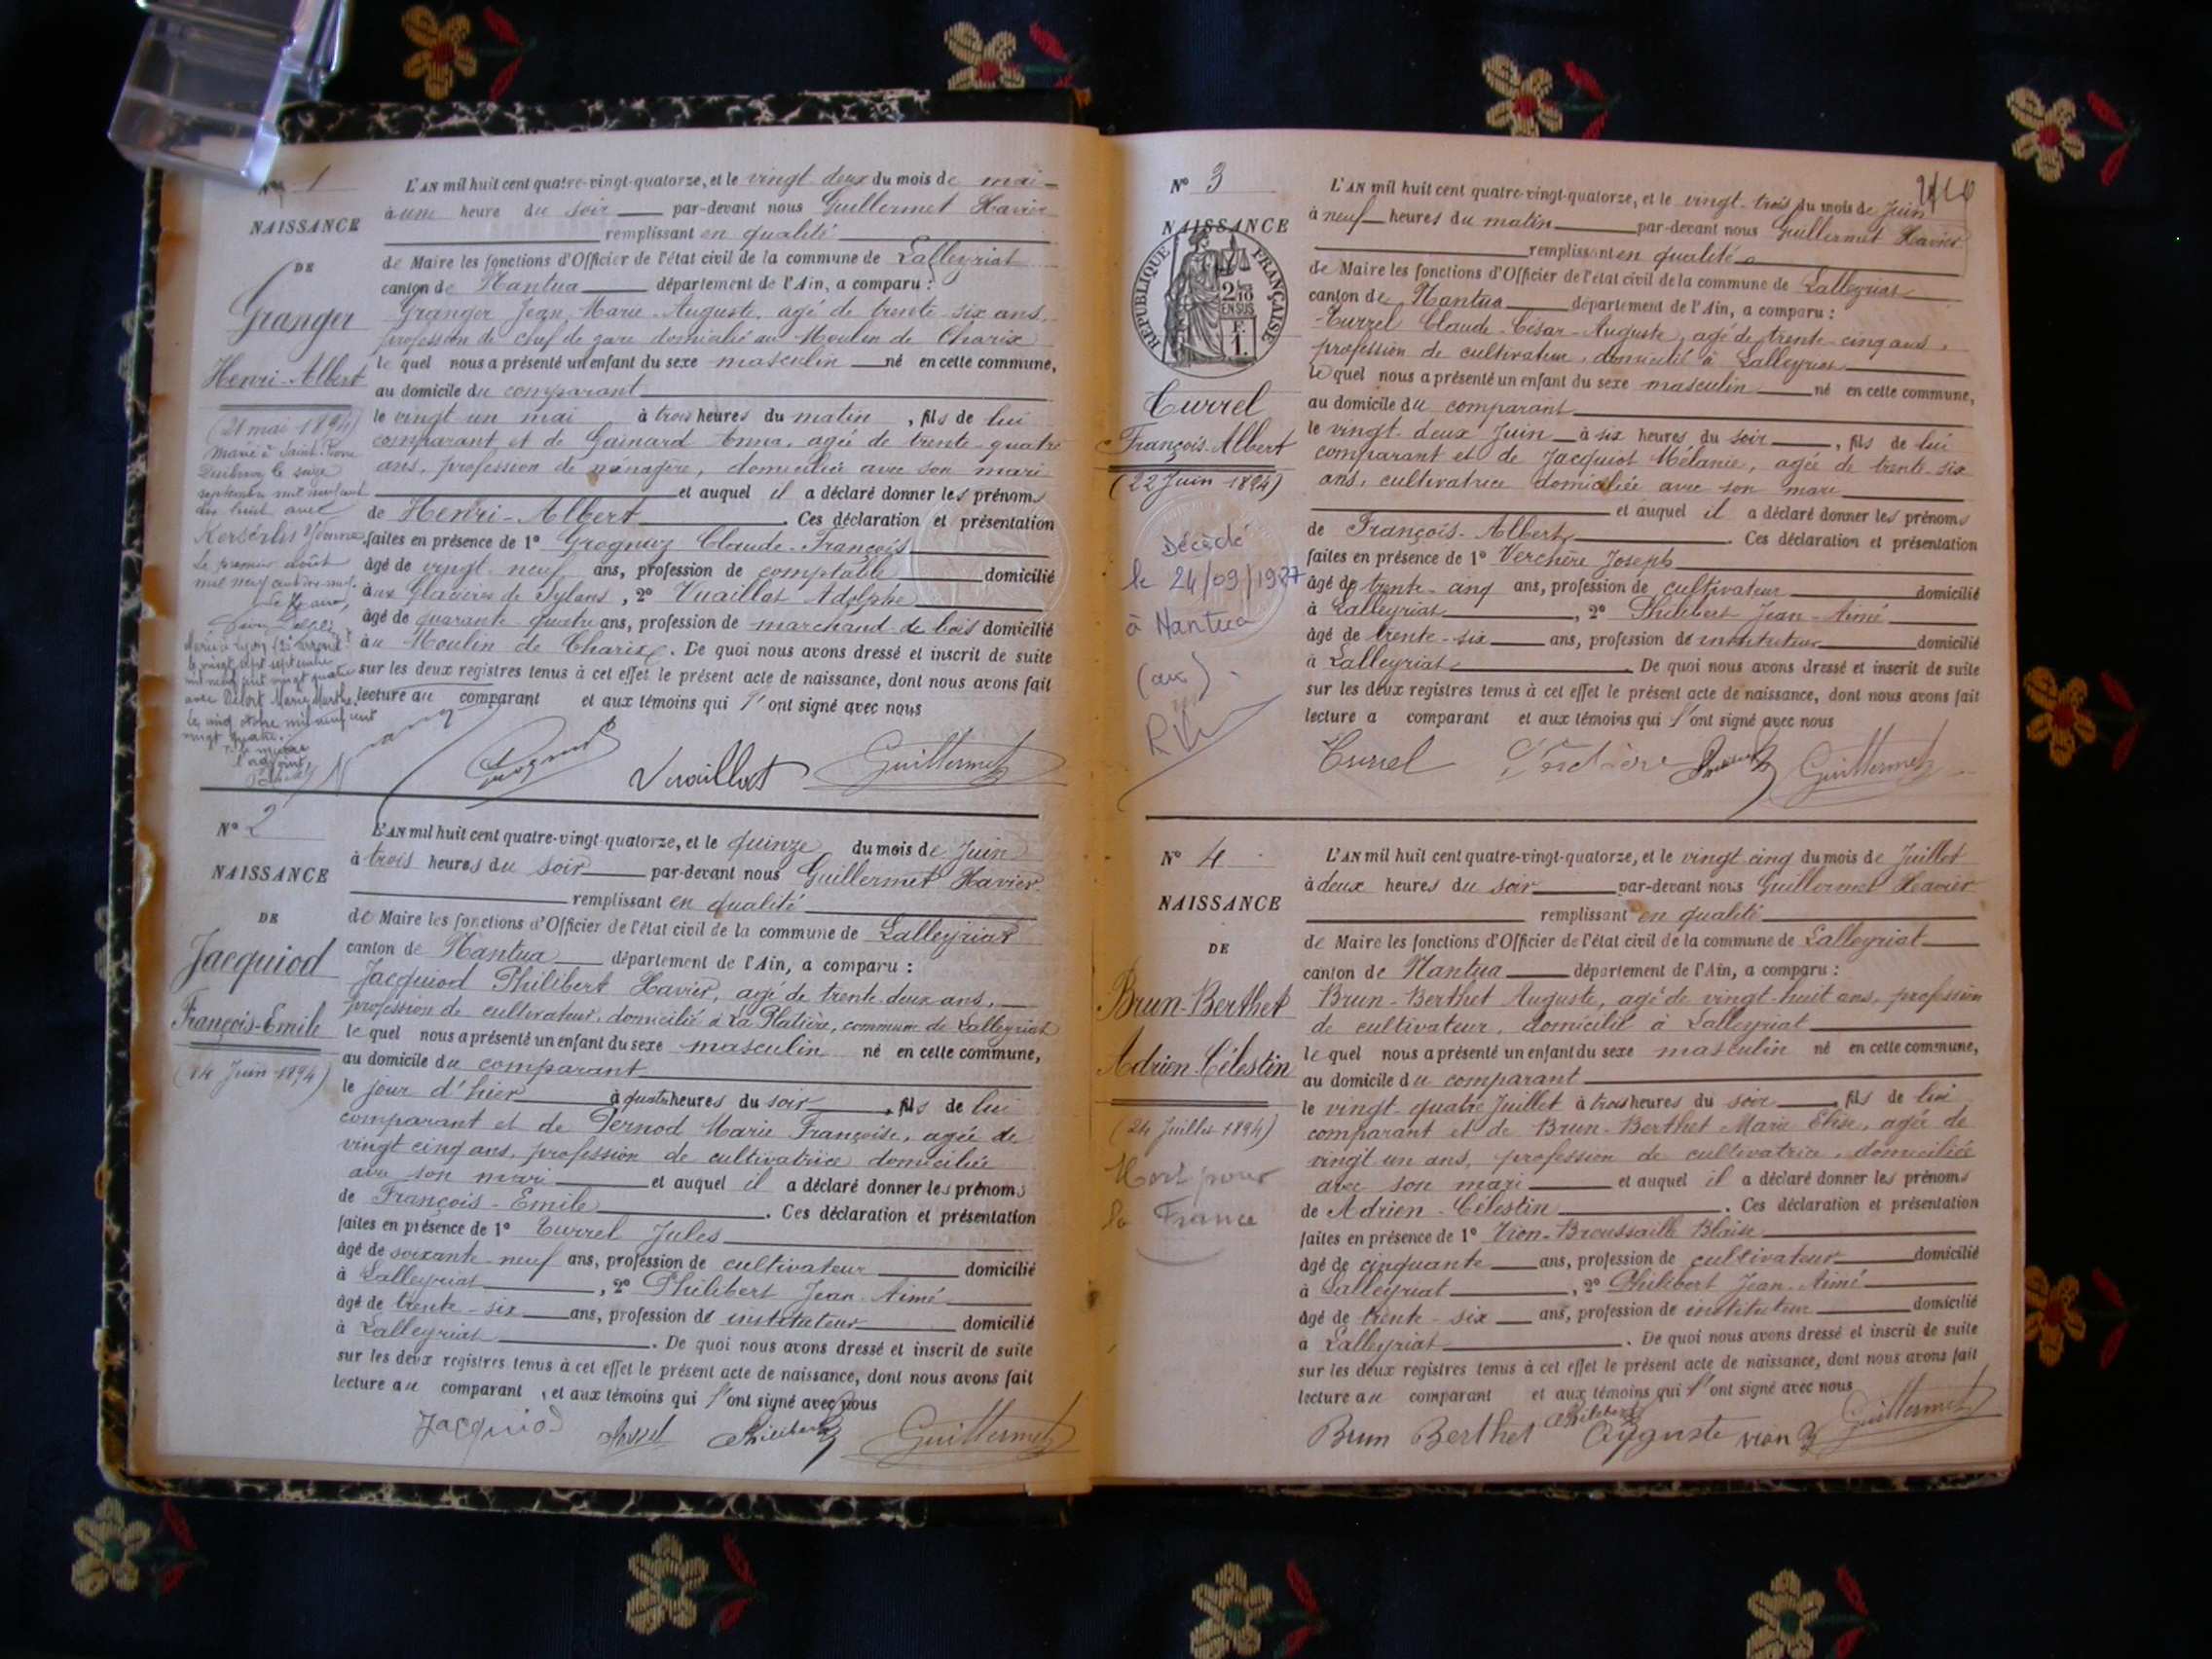 N° 1
NAISSANCE
DE
Granger
Henri-Albert
(21 mai 1894)
Marié à Saint-Pierre
le seize
septembre mil neuf cent
dix huit avec
Yvonne
Le premier août
mil neuf cent dix neuf
le vingt sept septembre
mil neuf cent vingt quatre
avec Délort Marie Marthe
le cinq octobre mil neuf cent
vingt quatre.
L'AN mil huit cent quatre-vingt-quatorze, et le vingt deux du mois de mai
à une heure du soir par-devant nous Guillermet Xavier
remplissant en qualité
de Maire les fonctions d'Officier de l'état civil de la commune de Lalleyriat
canton de Nantua département de l'Ain, a comparu :
Granger Jean Marie Auguste, agé de trente-six ans,
profession de chef de gare domicilié au Moulin de Charix
lequel nous a présenté un enfant du sexe masculin né en cette commune,
au domicile du comparant
le vingt un mai à trois heures du matin, fils de lui
comparant et de Gainard Anna, agée de trente-quatre
ans, profession de ménagère, domiciliée avec son mari
et auquel il a déclaré donner les prénoms
de Henri-Albert. Ces déclaration et présentation
faites en présence de 1° Grognuz Claude-François
âgé de vingt-neuf ans, profession de comptable domicilié
aux Glacières de Sylans, 2° Vuaillat Adolphe
âgé de quarante quatre ans, profession de marchand de bois domicilié
au Moulin de Charix. De quoi nous avons dressé et inscrit de suite
sur les deux registres tenus à cet effet le présent acte de naissance, dont nous avons fait
lecture au comparant et aux témoins qui l'ont signé avec nous
Vuaillat Guillermet
N° 2
NAISSANCE
DE
Jacquiod
François-Emile
(14 Juin 1894)
L'AN mil huit cent quatre-vingt-quatorze, et le quinze du mois de Juin
à trois heures du soir par-devant nous Guillermet Xavier
remplissant en qualité
de Maire les fonctions d'Officier de l'état civil de la commune de Lalleyriat
canton de Nantua département de l'Ain, a comparu :
Jacquiod Philibert Xavier, agé de trente-deux ans,
profession de cultivateur, domicilié à La Platière, commune de Lalleyriat
lequel nous a présenté un enfant du sexe masculin né en cette commune,
au domicile du comparant
le jour d'hier à quatre heures du soir, fils de lui
comparant et de Pernod Marie Françoise, agée de
vingt cinq ans, profession de cultivatrice domiciliée
avec son mari et auquel il a déclaré donner les prénoms
de François-Emile. Ces déclaration et présentation
faites en présence de 1° Turrel Jules
âgé de soixante-neuf ans, profession de cultivateur domicilié
à Lalleyriat, 2° Philibert Jean-Aimé
âgé de trente-six ans, profession de instituteur domicilié
à Lalleyriat. De quoi nous avons dressé et inscrit de suite
sur les deux registres tenus à cet effet le présent acte de naissance, dont nous avons fait
lecture au comparant, et aux témoins qui l'ont signé avec nous
Jacquiod Philibert Guillermet
N° 3
NAISSANCE
RÉPUBLIQUE FRANÇAISE
2/10
EN SUS
F.
1.
Turrel
François-Albert
(22 Juin 1894)
Décédé
à Nantua
L'AN mil huit cent quatre-vingt-quatorze, et le vingt-trois du mois de Juin
à neuf heures du matin par-devant nous Guillermet Xavier
remplissant en qualité
de Maire les fonctions d'Officier de l'état civil de la commune de Lalleyriat
canton de Nantua département de l'Ain, a comparu :
Turrel Claude-César-Auguste, agé de trente-cinq ans,
profession de cultivateur, domicilié à Lalleyriat
lequel nous a présenté un enfant du sexe masculin né en cette commune,
au domicile du comparant
le vingt-deux Juin à six heures du soir, fils de lui
comparant et de Jacquiot Mélanie, agée de trente-six
ans, cultivatrice domiciliée avec son mari
et auquel il a déclaré donner les prénoms
de François-Albert. Ces déclaration et présentation
faites en présence de 1° Verchère Joseph
âgé de trente-cinq ans, profession de cultivateur domicilié
à Lalleyriat, 2° Philibert Jean-Aimé
âgé de trente-six ans, profession de instituteur domicilié
à Lalleyriat. De quoi nous avons dressé et inscrit de suite
sur les deux registres tenus à cet effet le présent acte de naissance, dont nous avons fait
lecture a comparant et aux témoins qui l'ont signé avec nous
Turrel Verchère Guillermet
N° 4
NAISSANCE
DE
Brun-Berthet
Adrien-Célestin
(24 Juillet 1894)
Mort pour
la France
L'AN mil huit cent quatre-vingt-quatorze, et le vingt cinq du mois de Juillet
à deux heures du soir par-devant nous Guillermet Xavier
remplissant en qualité
de Maire les fonctions d'Officier de l'état civil de la commune de Lalleyriat
canton de Nantua département de l'Ain, a comparu :
Brun-Berthet Auguste, agé de vingt-huit ans, profession
de cultivateur, domicilié à Lalleyriat
lequel nous a présenté un enfant du sexe masculin né en cette commune,
au domicile du comparant
le vingt-quatre Juillet à trois heures du soir, fils de lui
comparant et de Brun-Berthet Marie Elise, agée de
vingt un ans, profession de cultivatrice, domiciliée
avec son mari et auquel il a déclaré donner les prénoms
de Adrien-Célestin. Ces déclaration et présentation
faites en présence de 1° Vion-Broussaille Blaise
âgé de cinquante ans, profession de cultivateur domicilié
à Lalleyriat, 2° Philibert Jean-Aimé
âgé de trente-six ans, profession de instituteur domicilié
a Lalleyriat. De quoi nous avons dressé et inscrit de suite
sur les deux registres tenus à cet effet le présent acte de naissance, dont nous avons fait
lecture au comparant et aux témoins qui l'ont signé avec nous
Brun Berthet Philibert Auguste vion B Guillermet